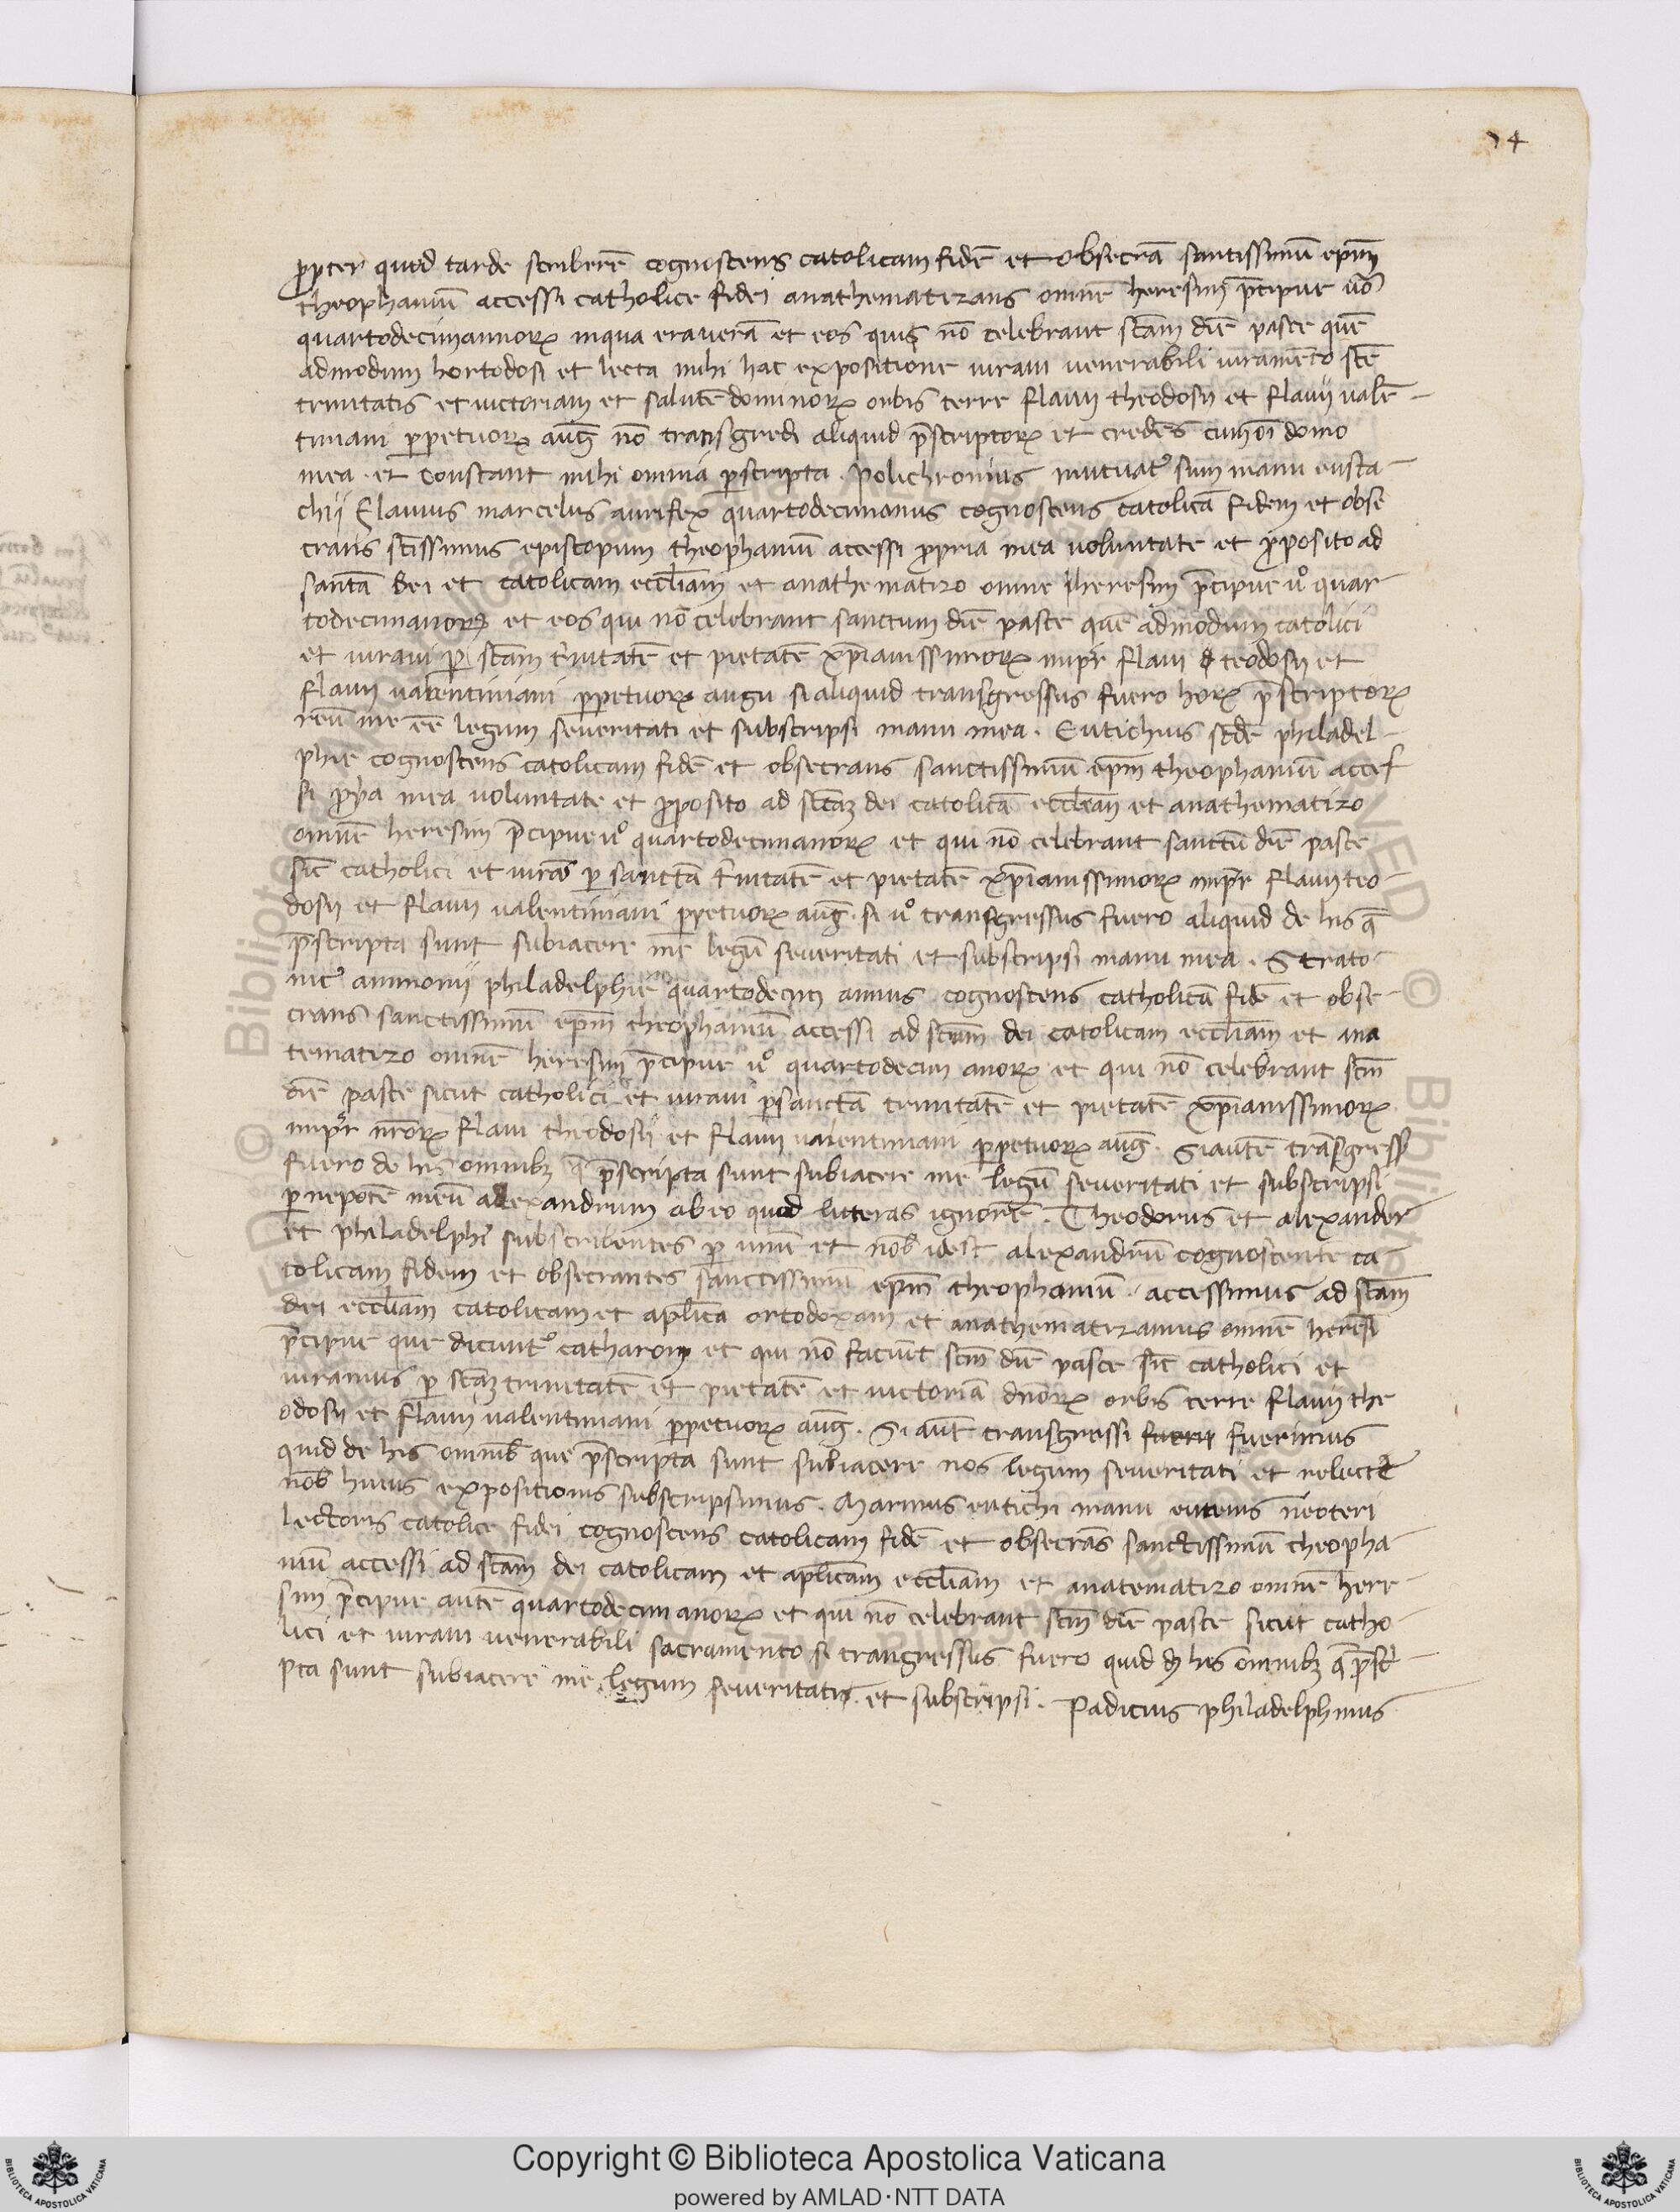 74
ppter quod tarde scriberē cognoscens catolicam fidē et obsecrā santissimū epm̄
theophaniū accessi catholice fidei anathematizans omnē heresim p̄cipue uō
quartodecimannorꝝ in qua eraverā et eos qui nō celebrant scām diē pasce quē
admodum hortodosi et lecta mihi hac expositione iuraui venerabili iuramento scē
trinitatis et uictoriam et salutē dominorꝝ orbis terre flauii theodosii et flauii valē-
tiniani ꝑpetuorꝝ aug̃ nō transgredi aliquid p̄scriptorꝝ et credēs cum oī domo
mea. et constant mihi omnia p̄scripta. Polichronius mutuatꝰ sum manu eusta-
chij Flauius marcelus aurifex quartodecimanus cognoscens catolicā fidem et obse
crans scīssimus episcopum theophaniū accessi propria mea voluntate et proposito ad
santā dei et catolicam eccliam et anathematizo omne heresim p̄cipue u° quar-
todecimanorꝝ et eos qui nō celebrant sanctum diē pasce quē admodum catolici
et iuraui ꝑ scām tr̄initatē et pietatē xp̄ianissimorꝝ impr̄ flaui teodosii et
flauii valentiniani ꝑpetuorꝝ augu si aliquid transgressus fuero horꝝ p̄scriptorꝝ
reū me eē legum seueritati et subscripsi manu mea. Eutichius scdē philadel-
phie cognoscens catolicam fidē et obsecrans sanctissimū epm̄ theophaniū acces
si ppa mea voluntate et proposito ad scām dei catolicā eccliam et anathematizo
omnē heresim p̄cipue u° quartodecimanorꝝ et qui nō celebrant sanctū diē pasce
sic̄ catholici et iuraī ꝑ sanctā tr̄initatē et pietatē xp̄ianissimorꝝ impr̄ flauii teo-
dosii et flauii valentiniani ꝑpetuorꝝ aug̃. si u° transgressus fuero aliquid de his q̄
p̄scripta sunt subiacere me legū seueritati et subscripsi manu mea. Strato-
nicꝰ ammonij philadelphie quartodecim annus cognoscens catholicā fidē et obse-
crans sanctissimū epm̄ theophaniū accessi ad scām dei catolicam eccliam et ana
tematizo omnē heresim p̄cipue u° quartodecim anorꝝ et qui nō celebrant scm̄
diē pasce sicut catholici et iuraui ꝑ sanctā trinitatē et pietatē xp̄ianissimorꝝ
impr̄ nr̄orꝝ flaui theodosij et flauij valentiniani ꝑpetuorꝝ aug̃. Si autē trāsgress
fuero de his omnibꝫ q̄ p̄scripta sunt subiacere me legū seueritati et subscripsi
ꝑ nepotē meū alexandrum ab eo quod litteras ignorē. Theodorus et alexander
et philadelphꝰ subscribentes ꝑ unū et nob̄ idest alexandrū cognoscente ca-
tolicam fidem et obsecrantes sanctissimū epm̄ theophaniū. accessimus ad scām
dei eccliam catolicam et aplicā ortodoxam et anathematizamus omnē heresī
p̄cipue que dicuntꝰ catharorꝝ et qui nō faciunt scm̄ diē pasce sic̄ catholici et
iuramus ꝑ scāꝫ trinitatē et pietatē et uictoriā dn̄orꝝ orbis terre flauij the
odosii et flauij valentiniani ꝑpetuorꝝ aug̃. Si aūt transgressi fuerin fuerimus
quid de his omnib̄ que p̄scripta sunt subiacere nos legum seueritati et relecte
nob̄ huius expositionis subscripsimus. Marinus eutichi manu neoteri
lectoris catolice fidei cognoscens catolicam fidē et obsecrās sanctissimū theopha-
niū accessi ad scām dei catolicam et aplicam eccliam et anatematizo omnē here-
sim p̄cipue autē quartodecim anorꝝ et qui nō celebrant scm̄ diē pasce sicut catho-
lici et iuraui venerabili sacramento si trangressus fuero quid d̄ his omnibꝫ q̄ p̄sc̄ri-
pta sunt subiacere me legum seueritatis. et subscripsi. Padicius philadelphinus